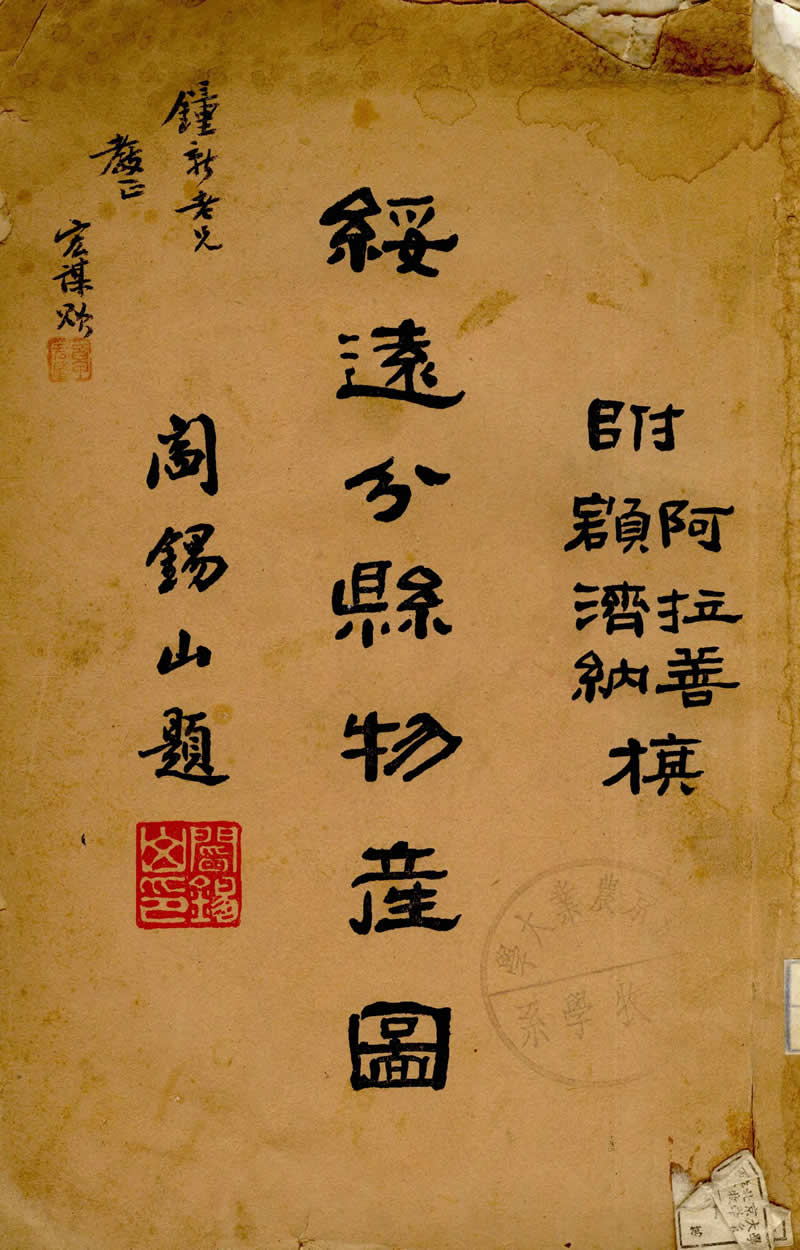 附
阿拉善
額濟納
旗
綏遠分縣物產圖
閻錫山題
閻錫山印
鐘新老兄
教正
宏謀贈
農業大學
牧學系
北京大學
第